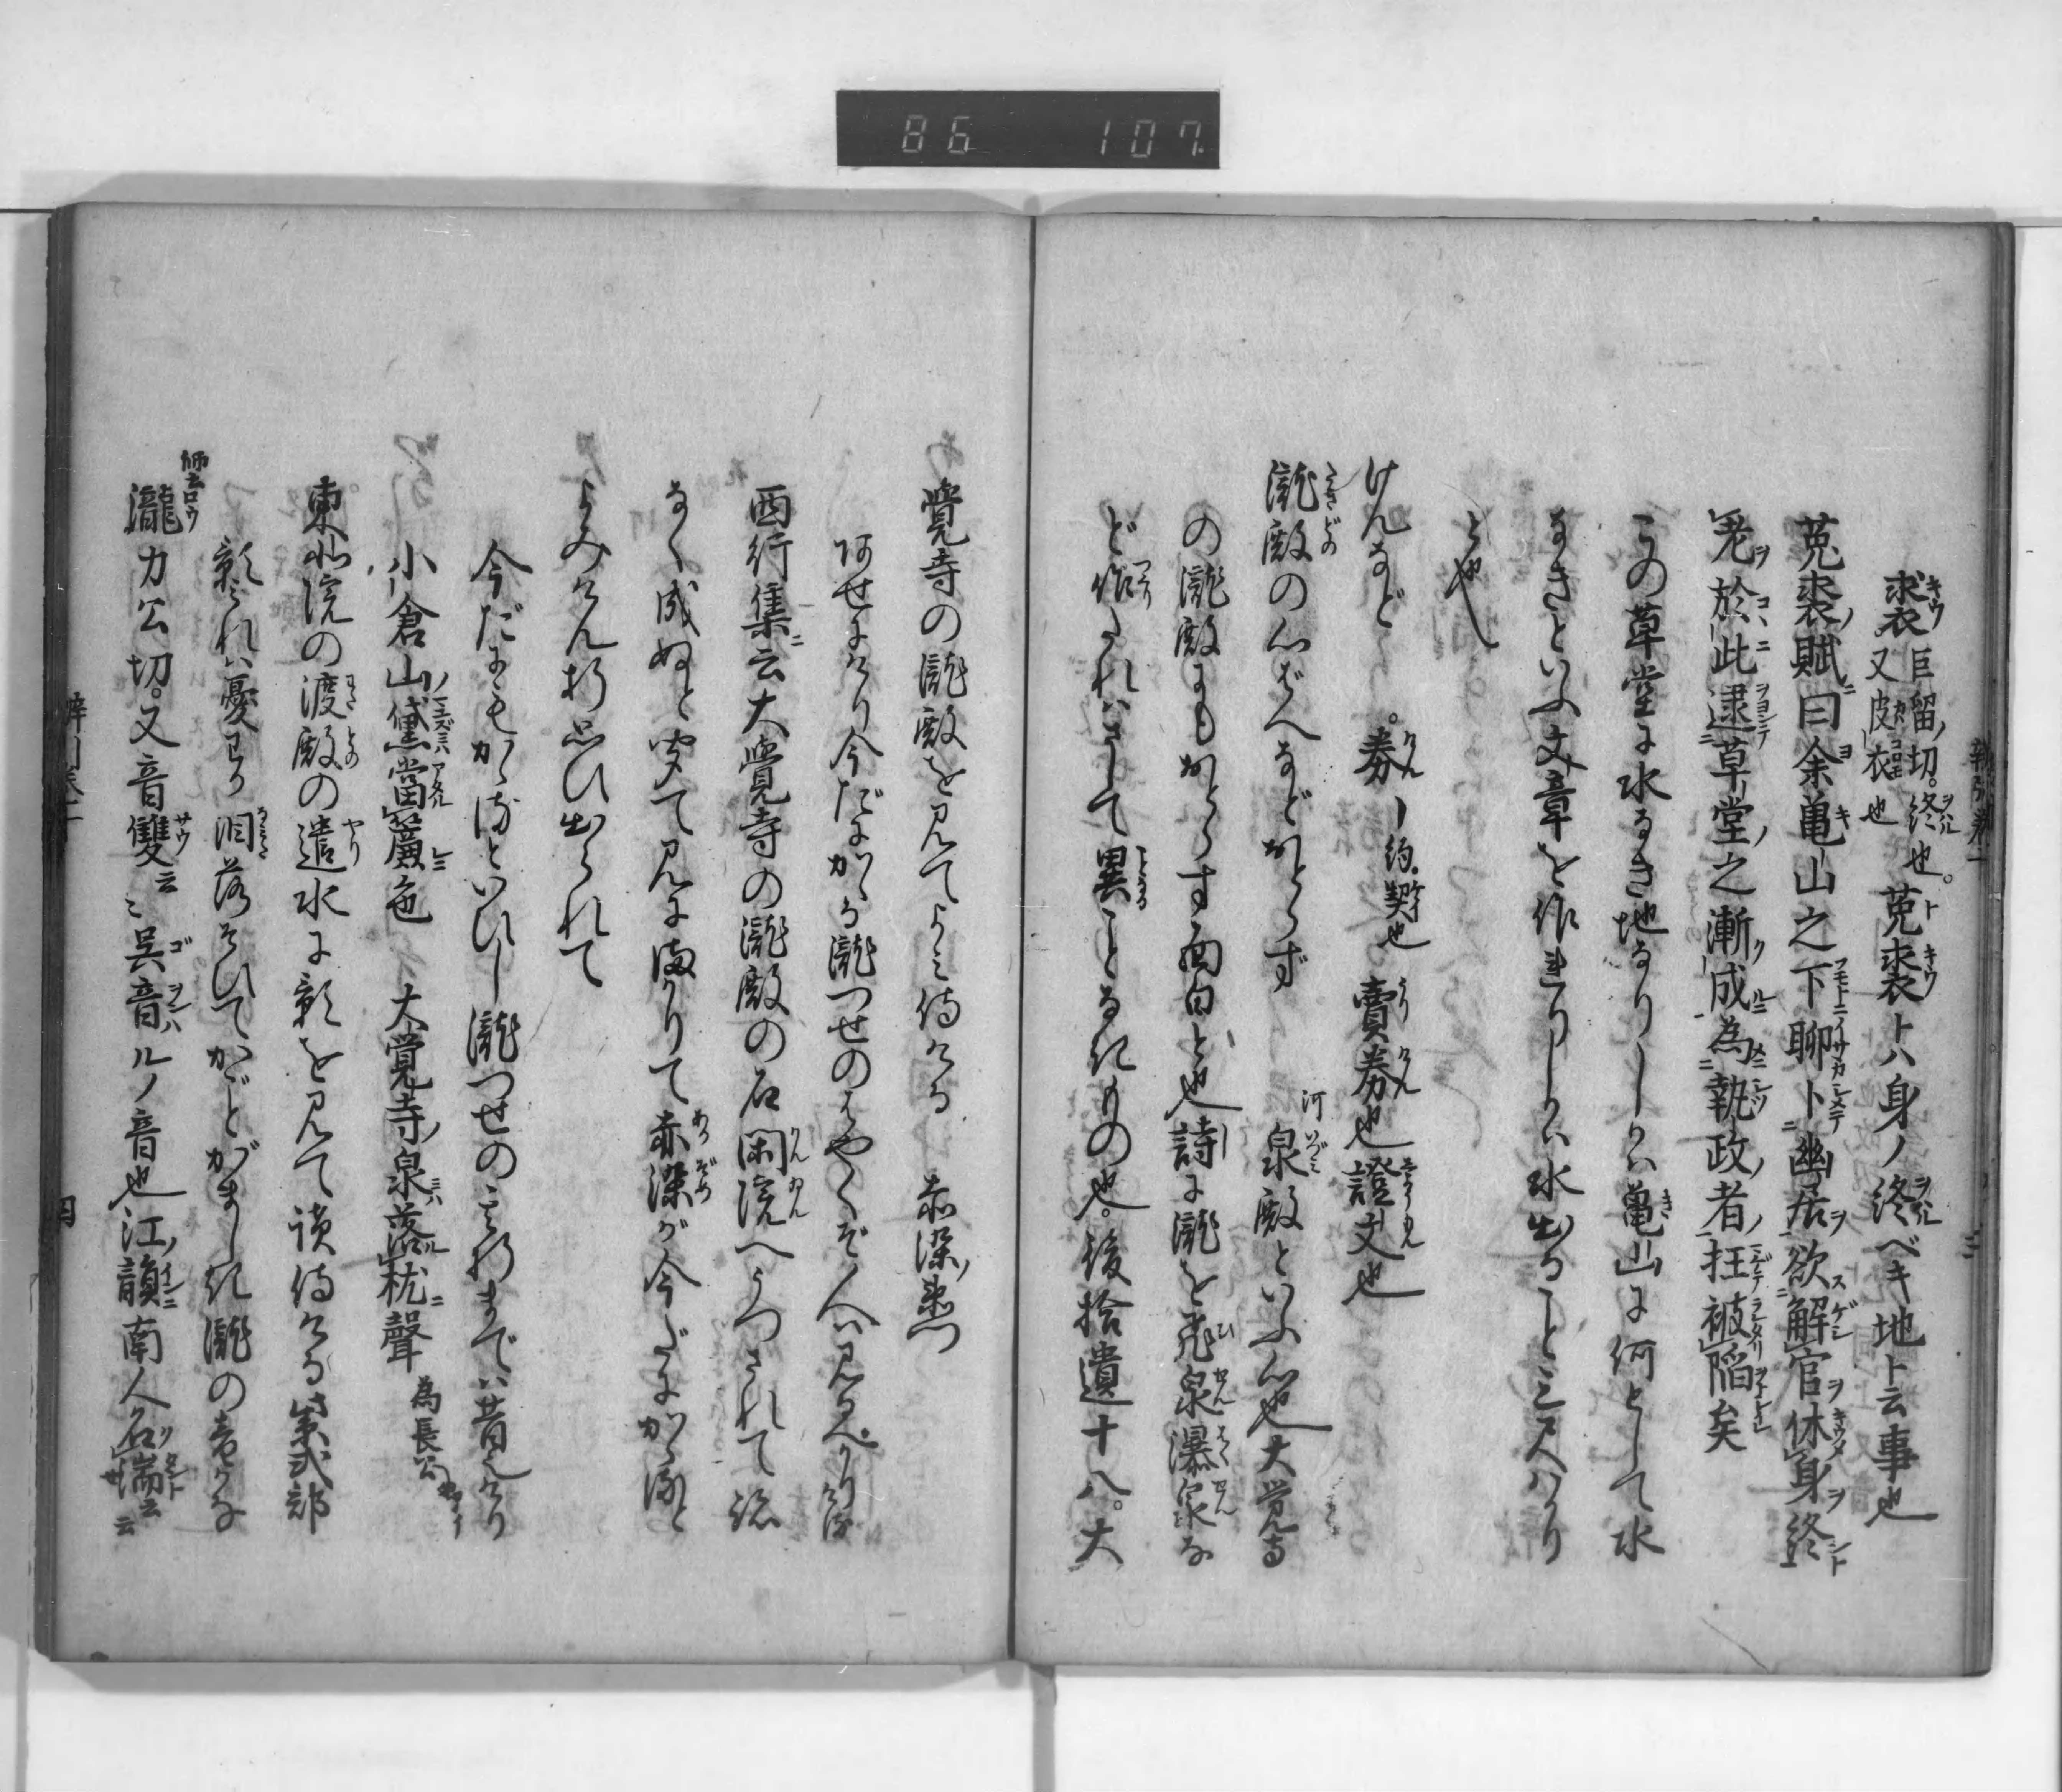 86 107
裘巨留切。終也。菟裘トハ身ノ終ベキ地ト云事也
又皮衣也
菟裘賦曰余亀山之下聊卜幽居欲解官休身終
老於此逮草堂之漸成為執政者枉被陥矣
この草堂に水なき地なりしかバ亀山に何として水
なきといふ文章を作れりしかバ水出ること三尺バかり
と也
けんなど 券 約契也 賣券也證文也
瀧殿の心ばへなどおとらず 河 泉殿といふ心也大覚寺
の瀧殿にもおとらす面白と也詩に瀧を飛泉瀑泉な
ど作れバさして異ことなきもの也。後拾遺十八。大
覚寺の瀧殿を見てよミ侍ける 赤染衛門
あせにけり今だにかゝる瀧つせのはやくぞ人ハ見るべかりける
西行集ニ云大覺寺の瀧殿の石閑院へうつされて跡
なく成ぬと聞て見にまかりて赤染が今だにかゝると
よみけん折思ひ出られて
今だにもかゝるといひし瀧つせの其折までハ昔なりけり
小倉山黛當簷色 大覚寺泉落枕聲 為長公
東北院の渡殿の遣水に影を見て読侍ける 紫式部
影見れバ憂わが泪落そひてかごとがましき瀧の音かな
師云ロウ
瀧力公切。又音雙云ミ呉音ハルノ音也江韻ニ南人名湍云
云
四